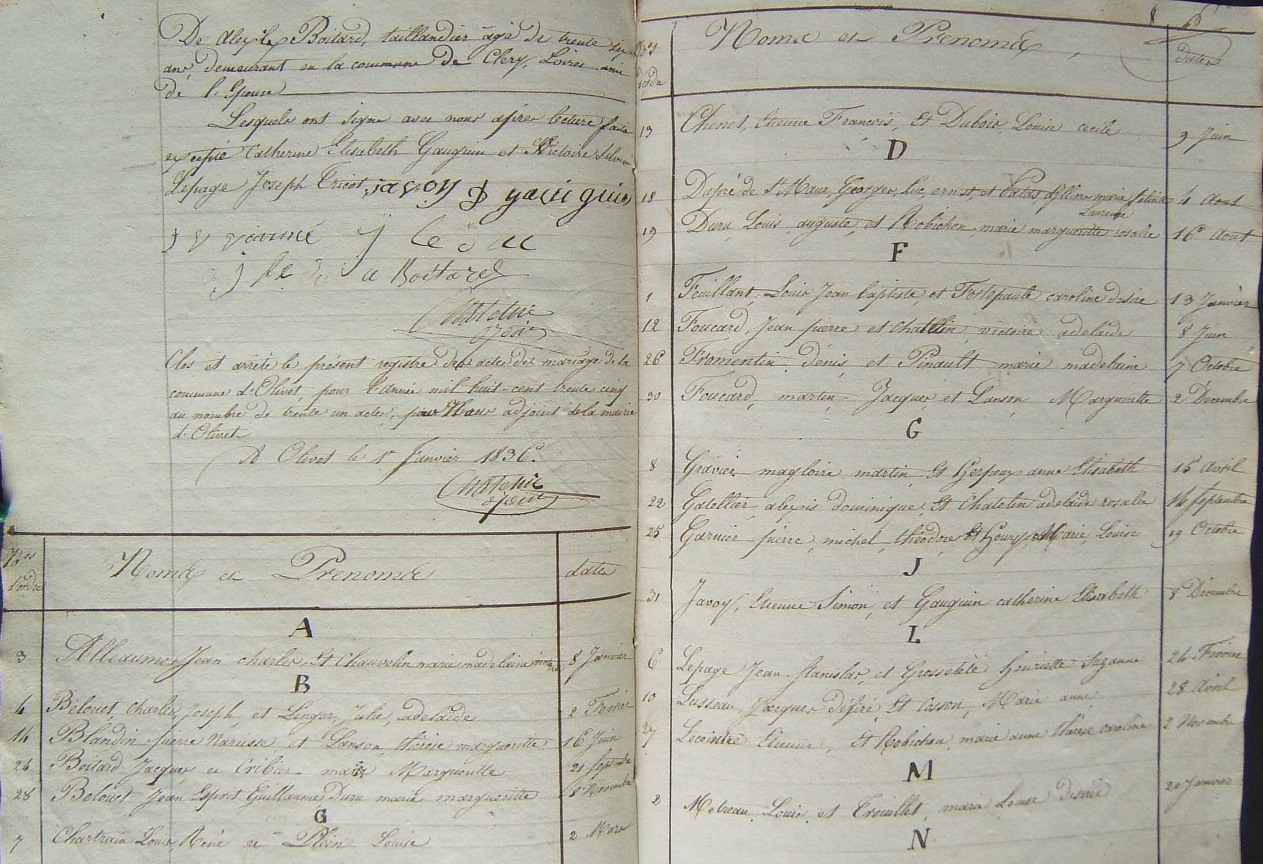 De Alexis Boitard, taillandier agé de trente six
ans, demeurant en la commune de Clery, Loiret ami
de l'Epouse
Lesquels ont signé avec nous après lecture faite
excepté Catherine Elisabeth Gauguin et Victoire
Lepage Joseph Tricot, javoy gauguin
a Boitard
Chatelin
adjoint
Clos et arrêté le présent registre des actes de mariage de la
commune d'Olivet, pour l'année mil huit-cent trente cinq
au nombre de trente un actes, par Nous adjoint de la mairie
d'Olivet
A Olivet le 1er Janvier 1836.
Chatelin
adjoint
Nos d'ordre Noms et Prenoms dates
A
3 Alleaume Jean charles Et Chauvelin marie madelaine 8 Janvier
B
4 Belouet Charles Joseph et Linger Julie adelaïde 2 Fevrier
14 Blandin pierre Narcisse et Lanson thérèse margueritte 16 Juin
24 Boitard Jacques et Cribier marie Margueritte 21 Septembre
28 Belouet Jean Esprit Guillaume Duru marie marguerite Novembre
C
7 Chartrain Louis René et Plein Louise 2 Mars
Nos d'ordre Noms et Prenoms dates
13 Chenet, Etienne François, Et Dubois Louise cecile 9 Juin
D
18 Dupré de St Maur Georges, Luc, ernest, et marie félicité 4 Aout
Laurence
19 Duru, Louis, auguste, et Robichon marie marguerite rosalie 16 Aout
F
1 Feuillant, Louis Jean baptiste et Fortepaule caroline desiré 13 Janvier
12 Foucard, Jean pierre et Chatelin victoire adelaïde 8 Juin
26 Fromentin, denis, et Pinault marie madelaine 7 Octobre
30 Foucard, martin Jacques et Lanson, Marguerite 2 Décembre
G
8 Gravier magloire martin Et anne Elisabeth 15 avril
22 Gatellier alexis dominique, Et Chatelin adelaïde rosalie 14 Septembre
25 Garnier pierre, michel, théodore Et Goury Marie, Louise 19 Octobre
J
31 Javoy, Etienne Simon, et Gauguin catherine Elisabeth 8 Décembre
L
6 Lepage Jean Stanislas, et Grossetête henriette Suzanne 26 Fevrier
10 Lusseau, Jacques Désiré, Et Cosson, Marie anne 28 avril
27 Lecomte Etienne, Et Robichon, marie anne thérèse caroline 2 Novembre
M
2 Louis, et Trouillet, marie Louise desirée 20 Janvier
N